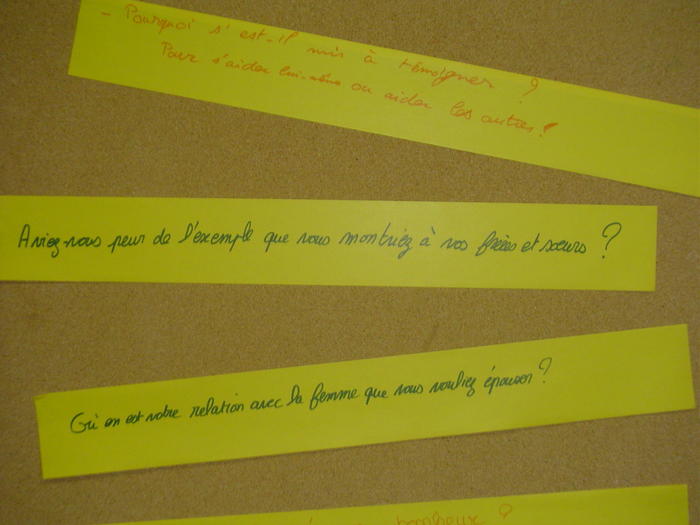 - Pourquoi s'est-il mis à témoigner ?
Pour s'aider lui-même ou aider les autres !
Aviez-vous peur de l'exemple que vous montriez à vos frères et sœurs ?
Où en est votre relation avec la femme que vous vouliez épouser ?